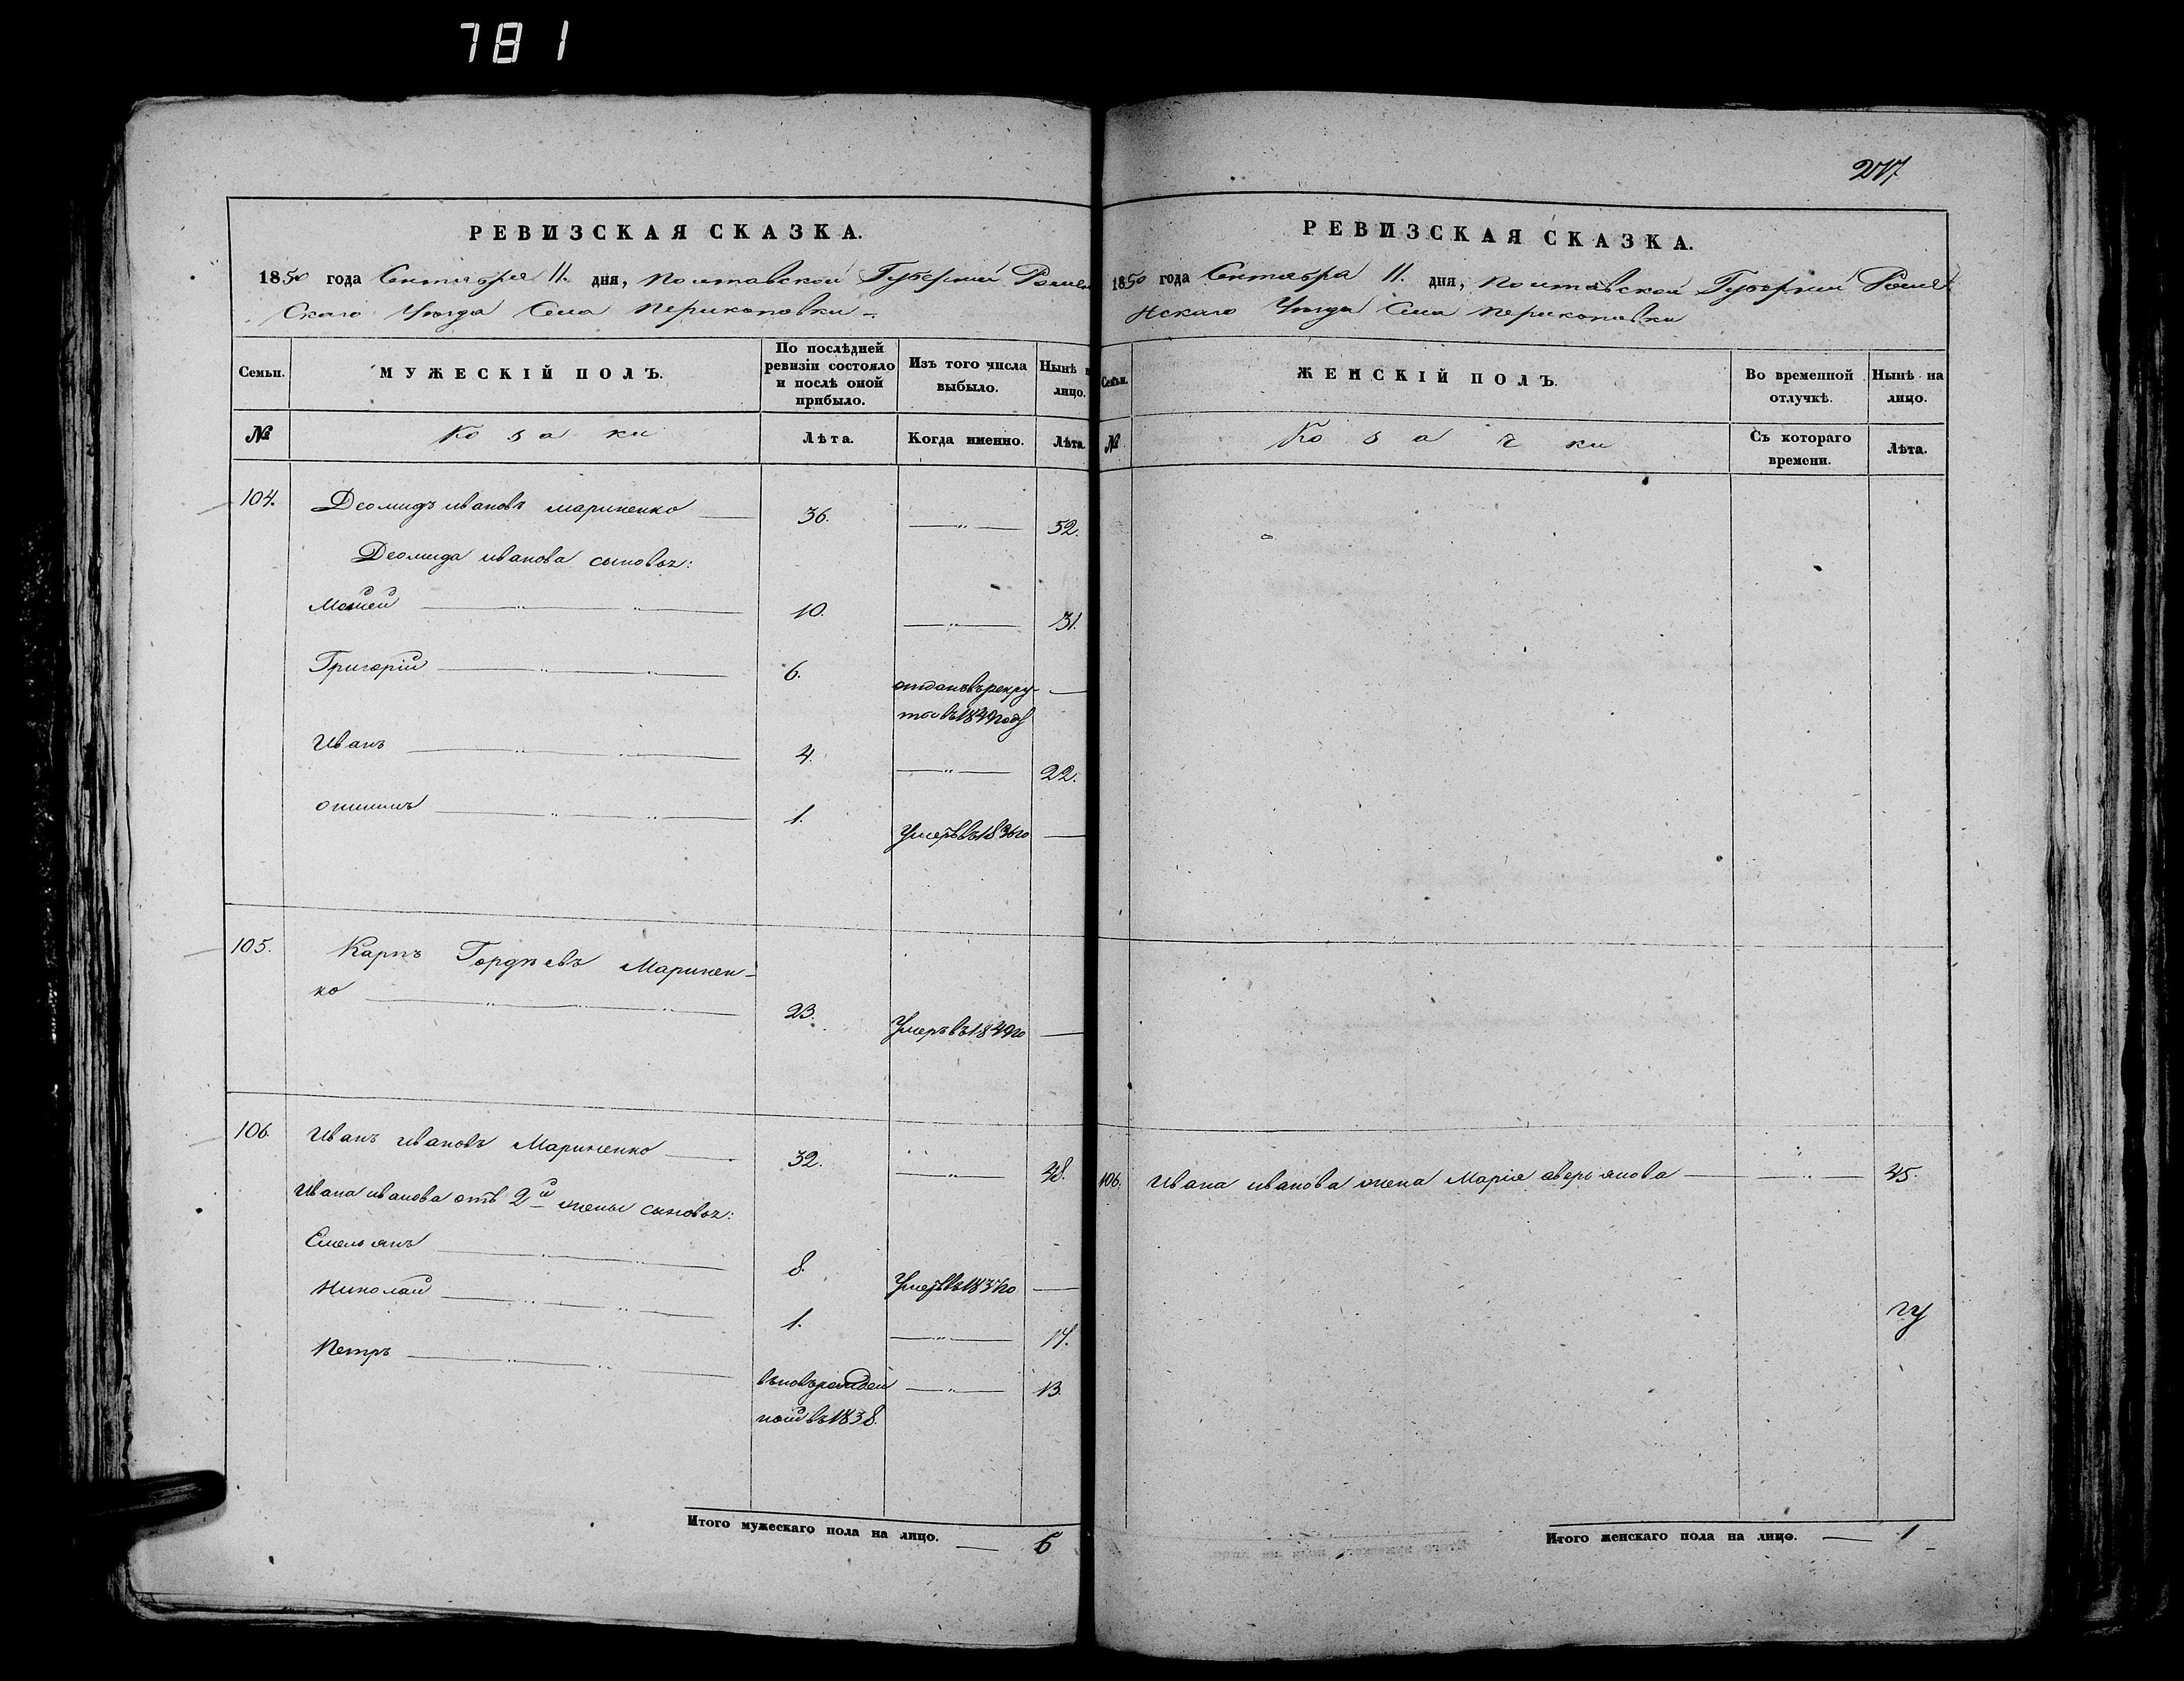 781
217
РЕВИЗСКАЯ СКАЗКА.
1850 года Сентября 11. дня, Полтавской Губернии Ромен
Скаго Уѣзда Села Перикоповки
Семьи.
МУЖЕСКІЙ ПОЛЪ.
По послѣдней ревизіи состояло и послѣ оной прибыло.
Изъ того числа выбыло.
Нынѣ н лицо.
№
Козаки
Лѣта.
Когда именно.
Лѣта.
104. Деомидъ ивановъ мариненко 36. 52.
Деомида иванова сыновья:
Мойсей 10. 31.
Григорій 6. отданъ въ рекру-
ты въ 1849 году
Иванъ 4. 22.
онисимъ 1. Умеръ въ 1836 го
105. Карпъ Гордѣевъ Маринен-
ко 23. Умеръ въ 1849 го
106. Иванъ ивановъ Мариненко 32. 48.
Ивана иванова отъ 2й жены сыновья:
Емельянъ 8. Умеръ въ 183 го
Николай 1. 17.
Петръ вновь рожден
ной въ 1838. 13.
Итого мужескаго пола на лицо. 6
РЕВИЗСКАЯ СКАЗКА.
1850 года Сентября 11. дня, Полтавской Губернии Роме
Нскаго Уѣзда Села Перикоповки
Семьи.
ЖЕНСКІЙ ПОЛЪ.
Во временной отлучкѣ.
Нынѣ на лицо.
№
Козачки
Съ котораго времени.
Лѣта.
106. Ивана иванова жена Марія аверьянова 45.
Итого женскаго пола на лицо. 1